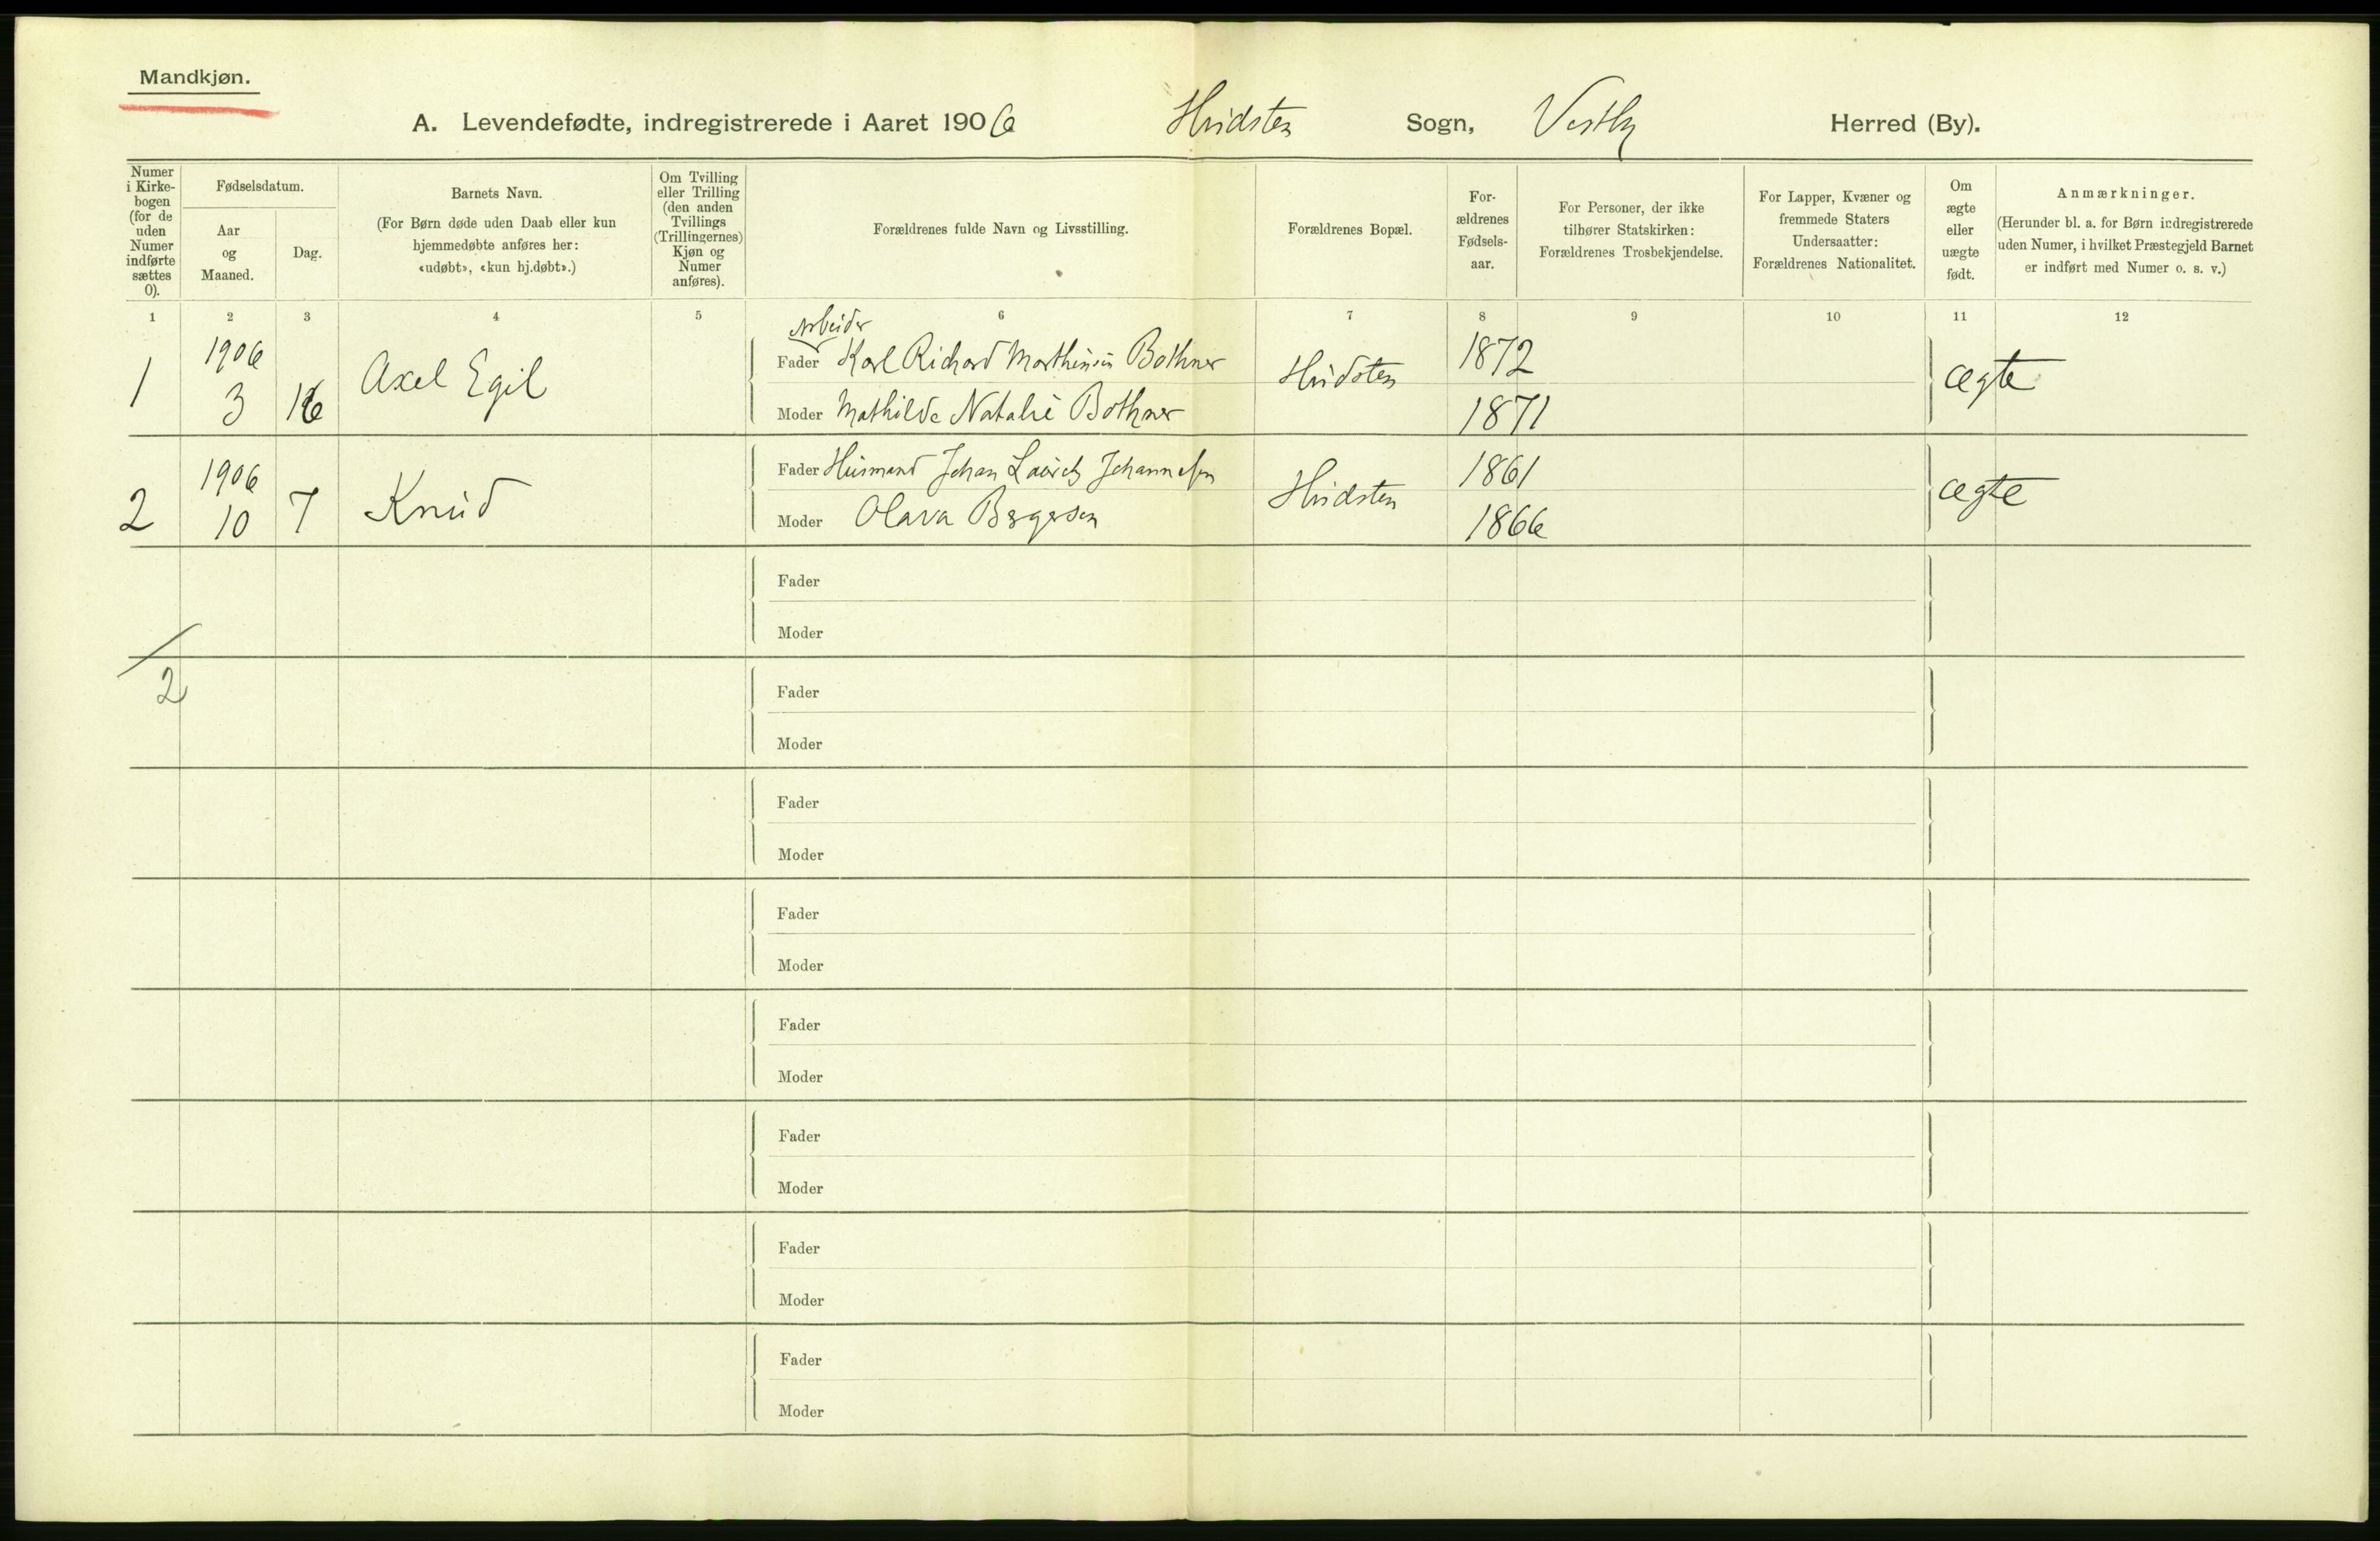 Mandkjøn.
A. Levendefødte, indregistrerede i Aaret 1906 Hvidsten Sogn, Vestby Herred (By).
Numer i Kirke-bogen (for de uden Numer indførte sættes 0).
Fødselsdatum.
Aar og Maaned.
Dag.
Barnets Navn.
(For Børn døde uden Daab eller kun
hjemmedøbte anføres her:
«udøbt», «kun hj.døbt».)
Om Tvilling
eller Trilling
(den anden
Tvillings
(Trillingernes)
Kjøn og
Numer
anføres).
Forældrenes fulde Navn og Livsstilling.
Forældrenes Bopæl.
For-
ældrenes
Fødsels-
aar.
For Personer, der ikke
tilhører Statskirken:
Forældrenes Trosbekjendelse.
For Lapper, Kvæner og
fremmede Staters
Undersaatter:
Forældrenes Nationalitet.
Om
ægte
eller
uægte
født.
Anmærkninger.
(Herunder bl. a. for Børn indregistrerede
uden Numer, i hvilket Præstegjeld Barnet
er indført med Numer o. s. v.)
1 2 3 4 5 6 7 8 9 10 11 12
Arbeider
1 1906 3 16 Axel Egil Fader Karl Richard Marthinsen Bothner Hvidsten 1872 ægte
Moder Mathilde Natalie Bothner 1871
2 1906 10 7 Knud Fader Husmand Johan Lauritz Johannesen Hvidsten 1861 ægte
Moder Olava Bergersen 1866
Fader
Moder
2
Fader
Moder
Fader
Moder
Fader
Moder
Fader
Moder
Fader
Moder
Fader
Moder
Fader
Moder